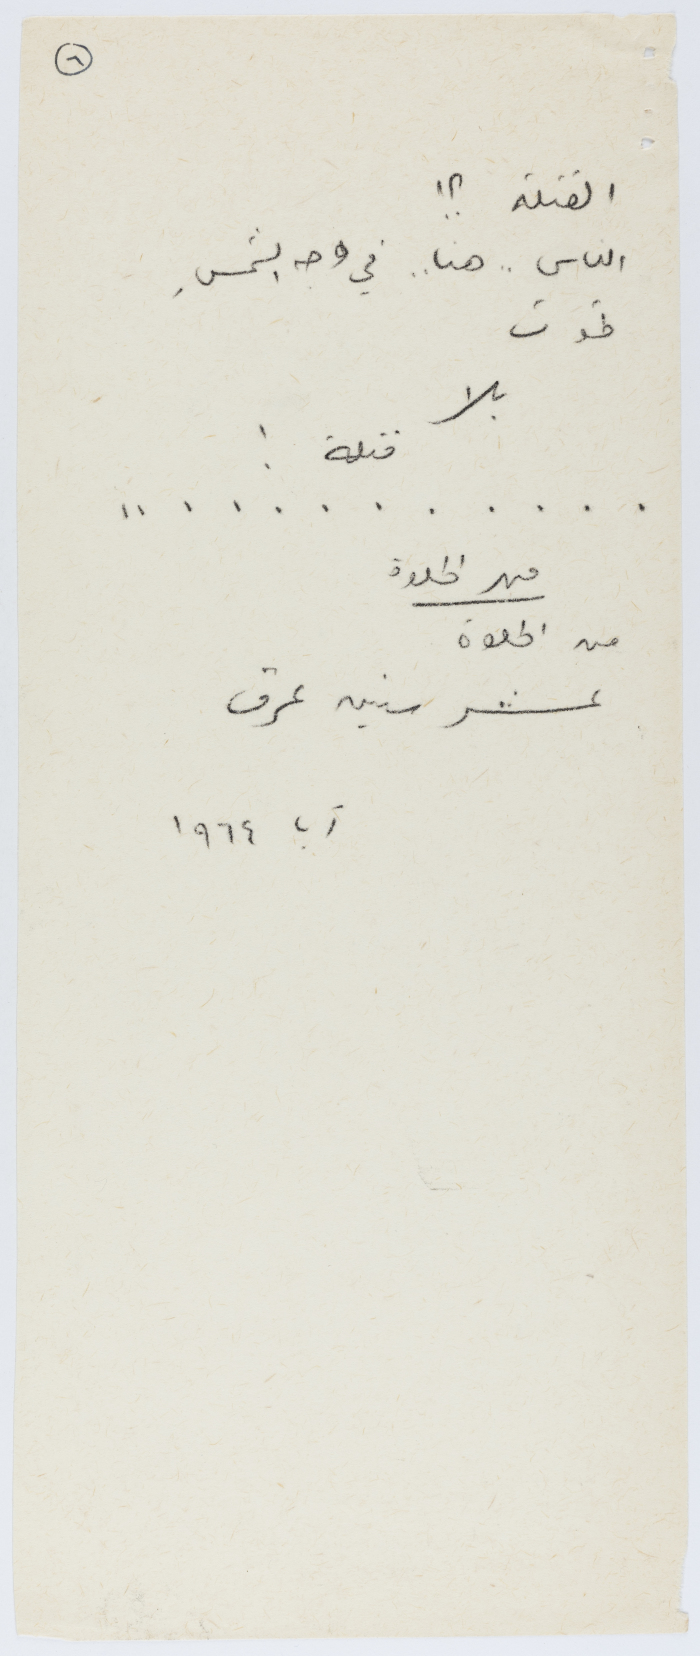 ٦
القتلة ؟!
الناس .. هنا .. في وجه الشمسِ
تموت
بلا
قتلة !
. . . . . . . . . . . . .
مهر الحلوة
مهر الحلوة
عشر سنين عرق
آب ١٩٦٤